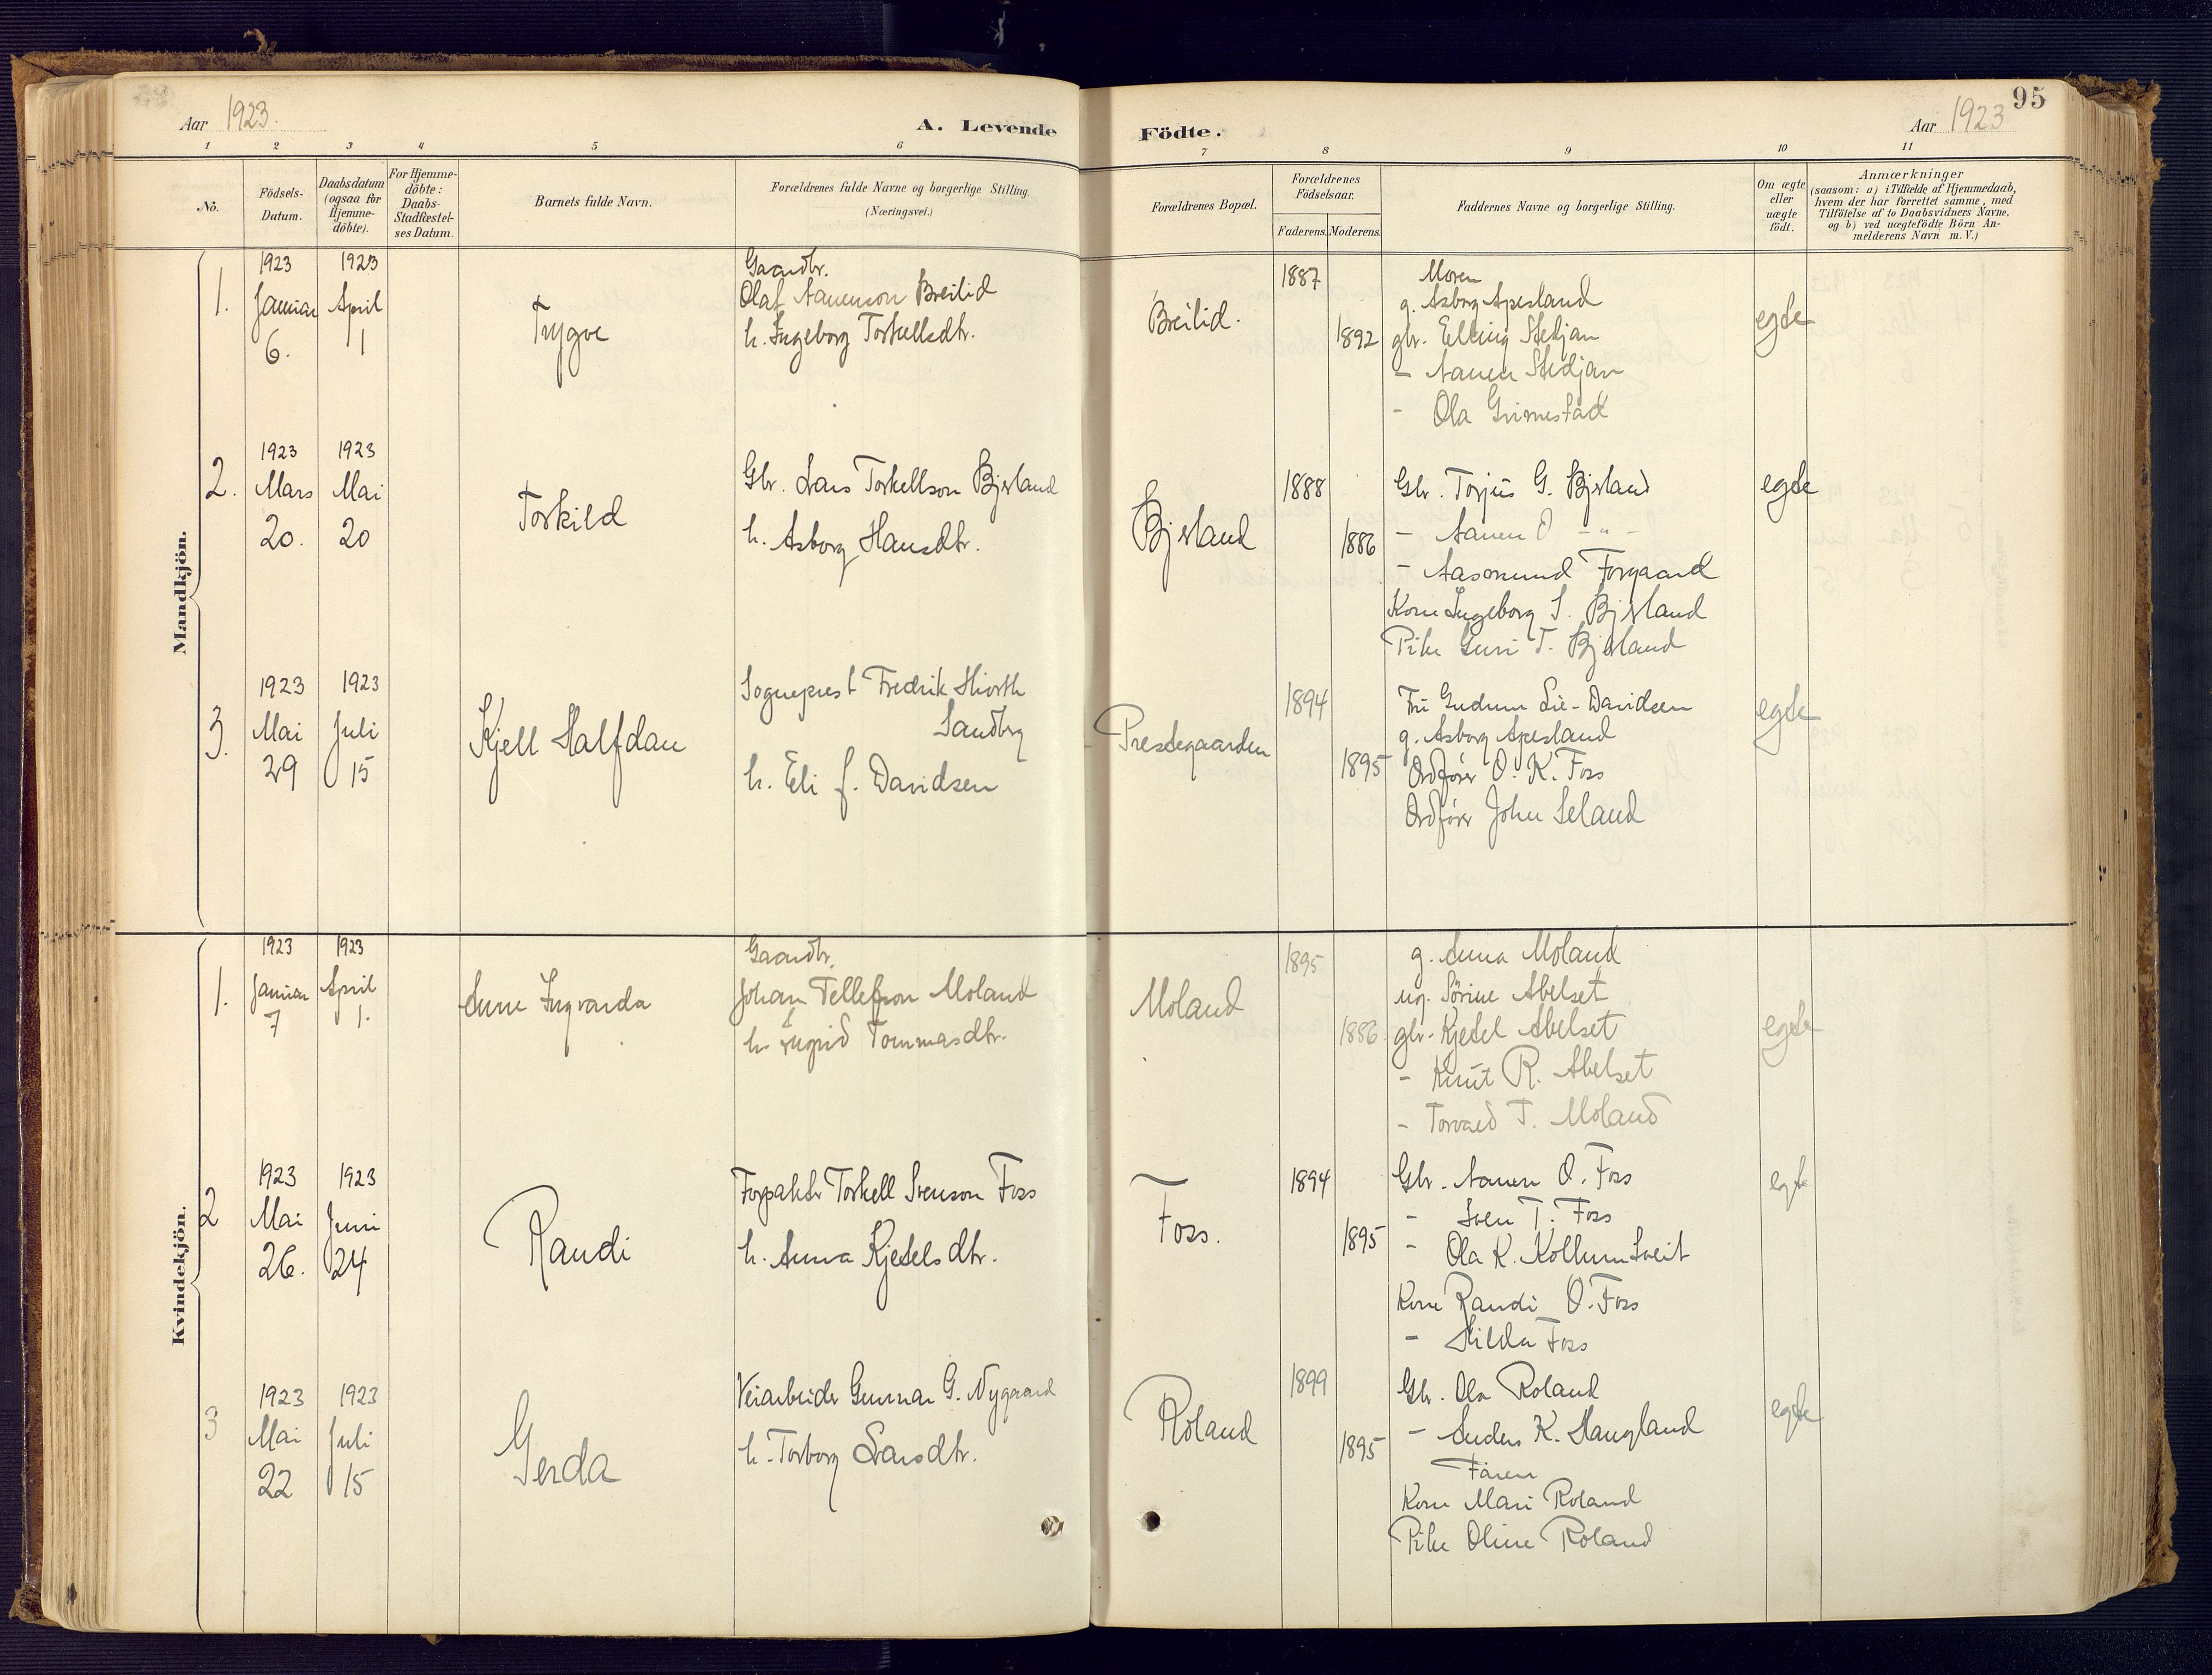 95
Aar 1923.
A. Levende
Födte.
Aar 1923
1 2 3 4 5 6 7 8 9 10 11
No.
Födsels-
Datum.
Daabsdatum
(ogsaa for
Hjemme-
döbte).
For Hjemme-
döbte:
Daabs-
Stadfæstel-
ses Datum.
Barnets fulde Navn.
Forældrenes fulde Navne og borgerlige Stilling.
(Næringsvei.)
Forældrenes Bopæl.
Forældrenes
Födselsaar.
Faderens. Moderens.
Faddernes Navne og borgerlige Stilling.
Om ægte
eller
uægte
födt.
Anmærkninger
(saasom: a) i Tilfælde af Hjemmedaab,
hvem der har forrettet samme, med
Tilföielse af to Daabsvidners Navne.
og b) ved uægtefödte Börn An-
melderens Navn m. V.)
Mandkjön.
1.
1923
Januar
6.
1923
April
1
Trygve
Gaardbr.
Olaf Aanenson Breilid
h. Ingeborg Torkellsdtr.
Breilid.
1887
1892
Moren
g. Asborg Apesland
gbr. Elling Stedjan
- Aanen Stedjan
- Ola Grimestad
egte
2.
1923
Mars
20.
1923
Mai
20
Torkild
Gbr. Lars Torkellson Bjerland
h. Asborg Hansdtr.
Bjerland
1888
1886
Gbr. Torjus G. Bjerland
- Aanen O - " -
- Aasmund Forgaard
Kone Ingeborg S. Bjerland
Pike Guri T. Bjerland
egte
3.
1923
Mai
29
1923
Juli
15
Kjell Halfdan
Sogneprest Fredrik Hiorth
Sandberg
h. Eli f. Davidsen
Prestegaarden
1894
1895
Fru Gudrun Lie-Davidsen
g. Asborg Apesland
Ordfører O. K. Foss
Ordfører John Seland
egte
Kvindekjön.
1.
1923
Januar
7
1923
April
1.
Anne Ingvarda
Gaardbr.
Johan Tellefson Moland
h. Ingrid Tommasdtr.
Moland
1895
1886
g. Anna Moland
ug. Sørine Abelset
gbr. Kjetel Abelset
- Knut R. Abelset
- Torvald T. Moland
egte
2
1923
Mai
26.
1923
Juni
24
Randi
Forpakter Torkell Svenson Foss
h. Anna Kjetelsdtr.
Foss.
1894
1895
Gbr. Aanen O. Foss
- Sven T. Foss
- Ola K. Kollumtveit
Kone Randi O. Foss
- Hilda Foss
egte
3
1923
Mai
22
1923
Juli
15
Gerda
Veiarbeider Gunnar G. Nygaard
h. Torborg Larsdtr.
Roland
1899
1895
Gbr. Ola Roland
- Anders K. Haugland
Faren
Kone Mari Roland
Pike Oline Roland
egte